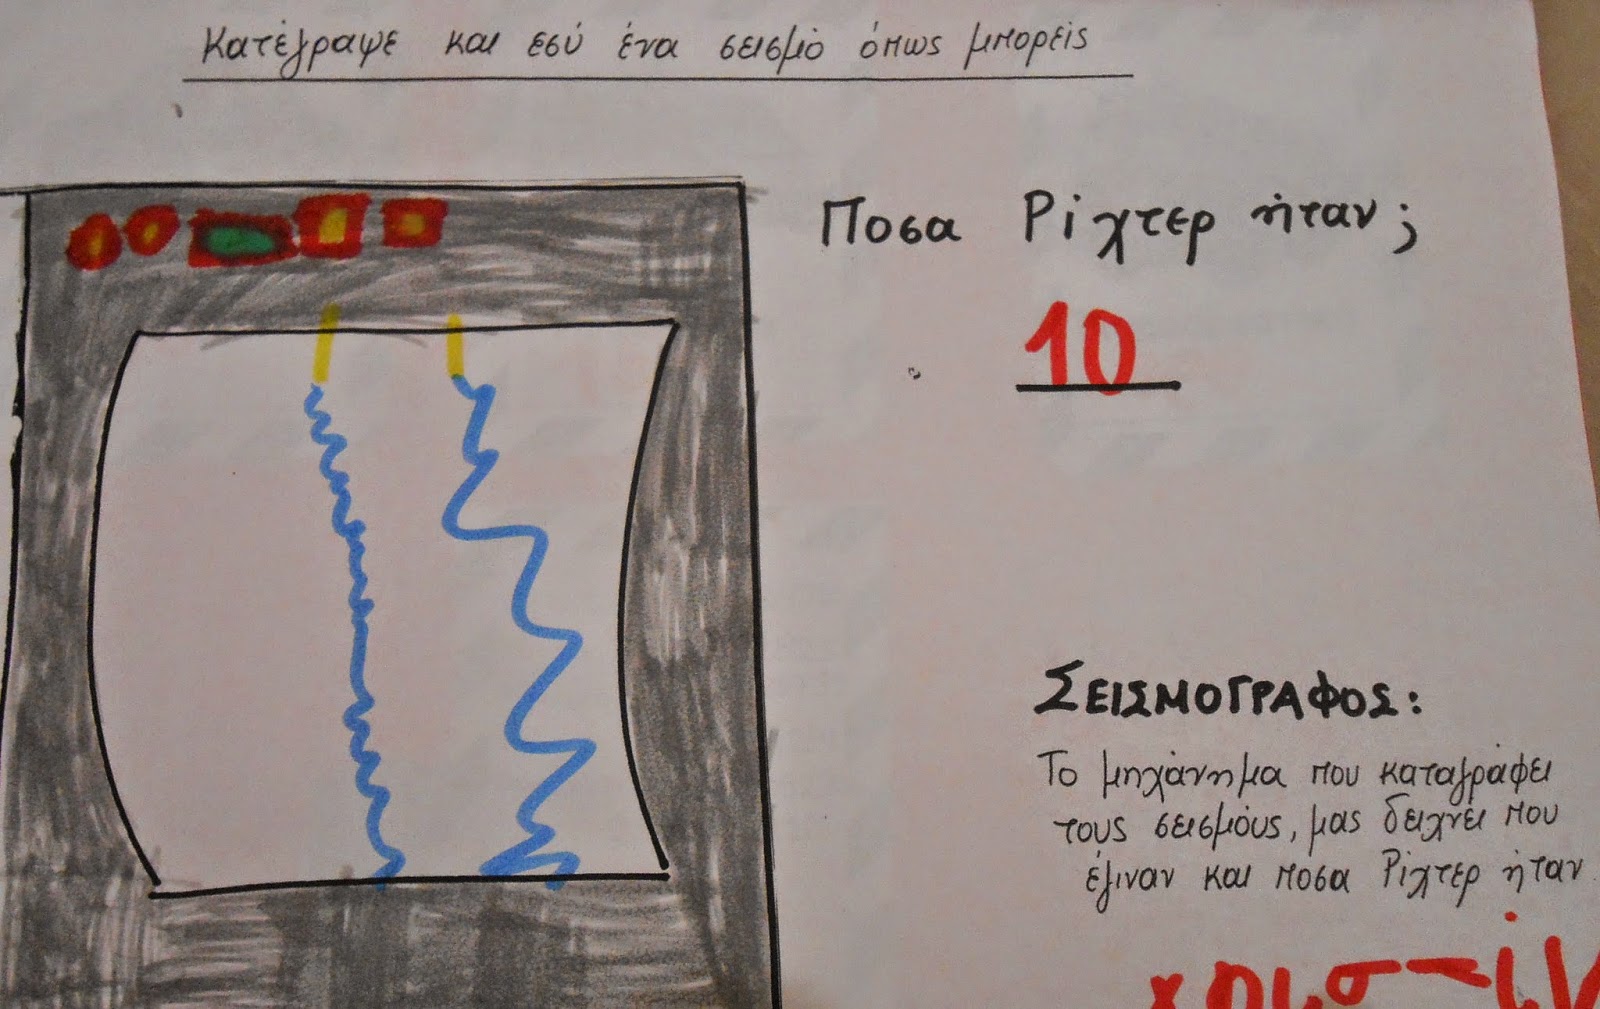 Κατέγραψε και εσύ ένα σεισμό όπως μπορείς
Ποσα Ρίχτερ ήταν;
10
ΣΕΙΣΜΟΓΡΑΦΟΣ:
Το μηχάνημα που καταγράφει
τους σεισμούς, μας δείχνει που
έγιναν και ποσα Ρίχτερ ήταν